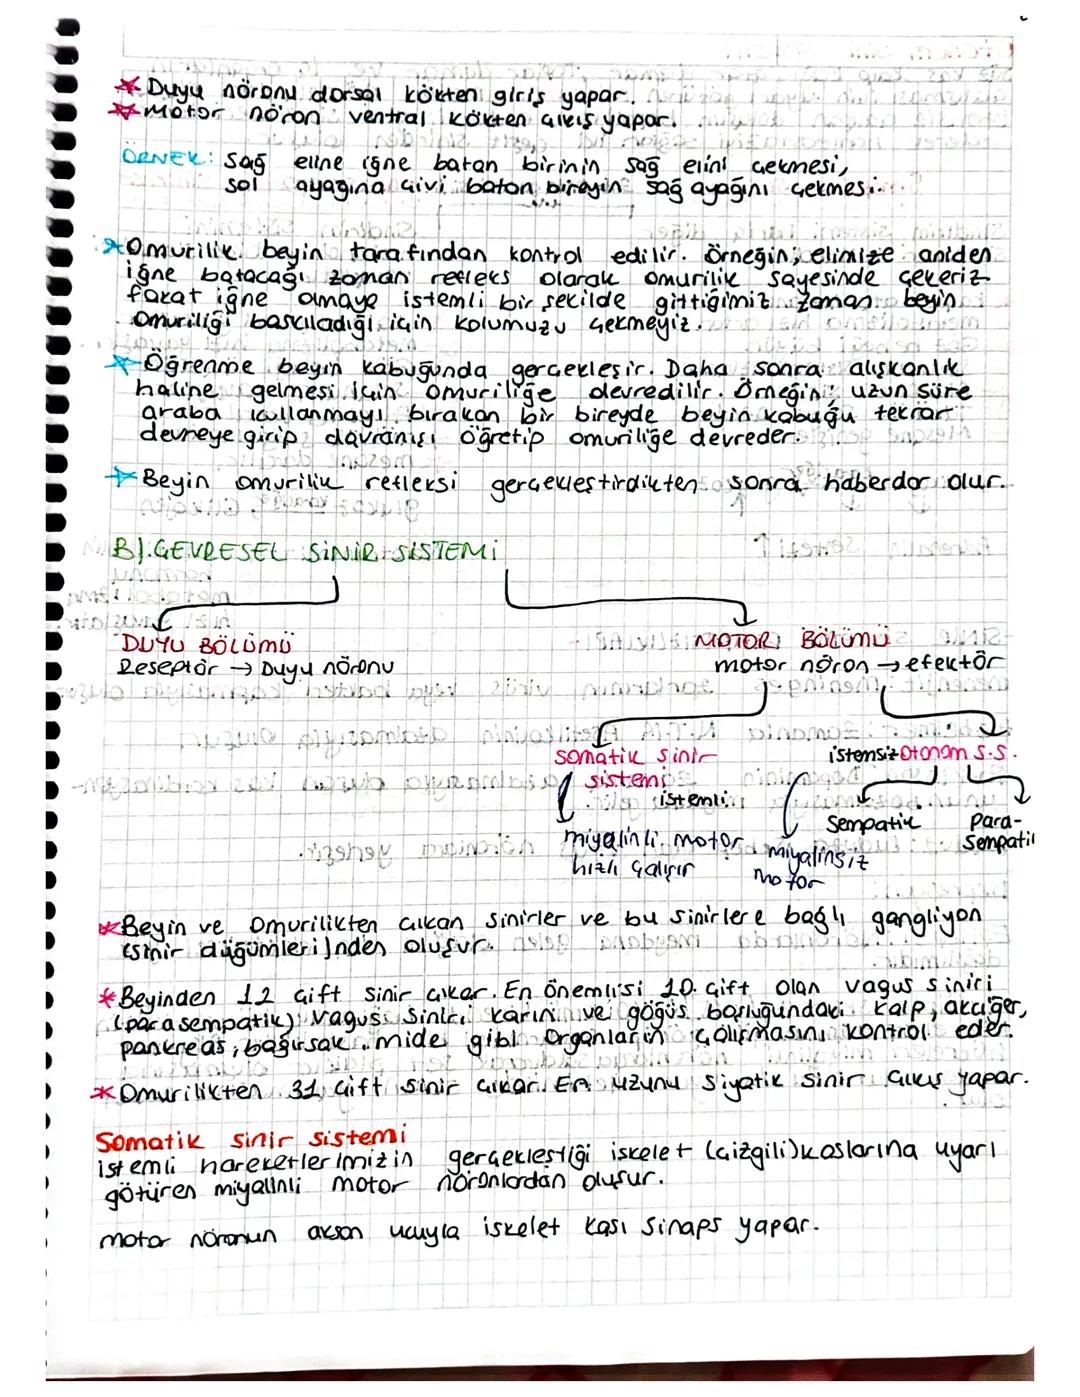 Duyu nöronu dorsal kökten giriş yapar.
Motor nöron ventral kökten çıkış yapar.
ÖRNEK: Sağ eline iğne batan birinin sağ elini çekmesi,
sol ayağına çivi batan bireyin sağ ayağını çekmesi.
Omurilik beyin tarafından kontrol edilir. Örneğin; elimize aniden
iğne batacağı zaman refleks olarak omurilik sayesinde çekeriz
fakat iğne olmaya istemli bir şekilde gittiğimiz zaman beyin
omuriliği baskıladığı için kolumuzu çekmeyiz.
Öğrenme beyin kabuğunda gerçekleşir. Daha sonra alışkanlık
haline gelmesi için omuriliğe devredilir. Örneğin; uzun süre
araba kullanmayı bırakan bir bireyde beyin kabuğu tekrar
devreye girip davranışı öğretip omuriliğe devreder.
Beyin omurilik refleksi gerçekleştirdikten sonra haberdar olur.
B). ÇEVRESEL SİNİR SİSTEMİ
DUYU BÖLÜMÜ
Reseptör → Duyu nöronu
MOTOR BÖLÜMÜ
motor nöron → efektör
Somatik sinir
sistemi
istemli
miyalinli motor
hızlı çalışır
istemsiz Otonom s.s.
Sempatik
Para-
Sempatik
miyalinsiz
motor
Beyin ve Omurilikten çıkan sinirler ve bu sinirlere bağlı gangliyon
(sinir düğümleri)nden oluşur.
Beyinden 12 çift sinir çıkar. En önemlisi 10. çift olan vagus siniri
(parasempatik) Vagus siniri karın ve göğüs boşluğundaki kalp, akciğer,
pankreas, bağırsak, mide gibi Organların çalışmasını kontrol eder.
Omurilikten 31 çift sinir çıkar. En uzunu Siyatik sinir çıkış yapar.
Somatik sinir sistemi
istemli hareketlerimizin gerçekleştiği iskelet (çizgili) kaslarına uyarı
götüren miyalinli motor nöronlardan oluşur.
motor nöronun akson ucuyla iskelet kası Sinaps yapar.